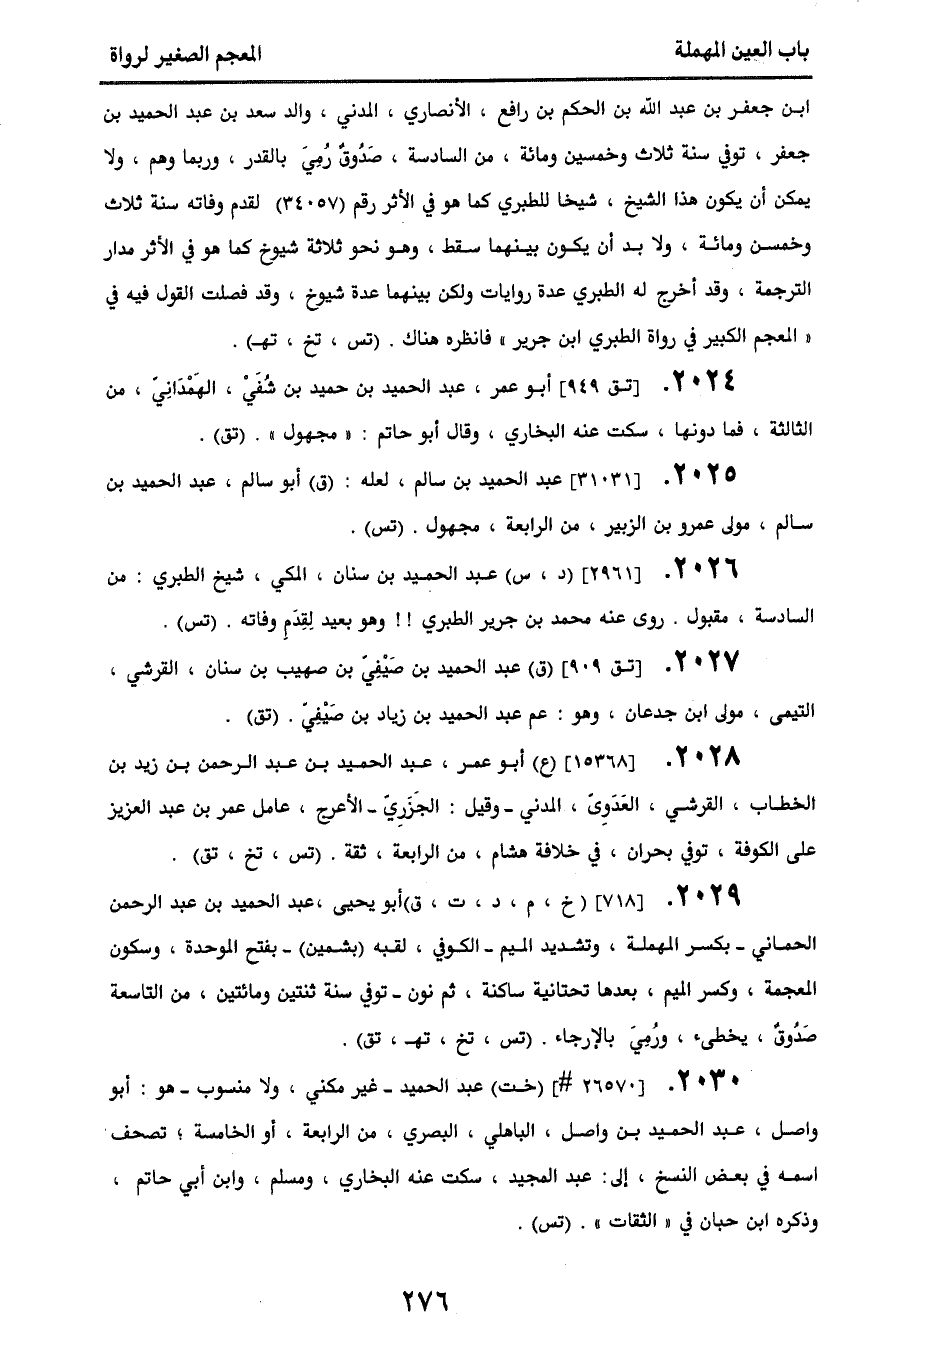 باب العين المهملة
المعجم الصغير لرواة
ابن جعفر بن عبد الله بن الحكم بن رافع ، الأنصاري ، المدني ، والد سعد بن عبد الحميد بن
جعفر ، توفي سنة ثلاث وخمسين ومائة ، من السادسة ، صَدُوقٌ رُمِيَ بالقدر ، وربما وهم ، ولا
يمكن أن يكون هذا الشيخ ، شيخا للطبري كما هو في الأثر رقم (٣٤٠٥٧) لقدم وفاته سنة ثلاث
وخمسن ومائة ، ولا بد أن يكون بينهما سقط ، وهو نحو ثلاثة شيوخ كما هو في الأثر مدار
الترجمة ، وقد أخرج له الطبري عدة روايات ولكن بينهما عدة شيوخ ، وقد فصلت القول فيه في
« المعجم الكبير في رواة الطبري ابن جرير » فانظره هناك . (تس ، تخ ، تهـ) .
٢٠٢٤. [تق ٩٤٩] أبو عمر ، عبد الحميد بن حميد بن شُفَيْ ، الهَمْدَانِيّ ، من
الثالثة ، فما دونها ، سكت عنه البخاري ، وقال أبو حاتم : « مجهول » . (تق) .
٢٠٢٥. [٣١٠٣١] عبد الحميد بن سالم ، لعله : (ق) أبو سالم ، عبد الحميد بن
سالم ، مولى عمرو بن الزبير ، من الرابعة ، مجهول . (تس) .
٢٠٢٦. [٢٩٦١] (د ، س) عبد الحميد بن سنان ، المكي ، شيخ الطبري : من
السادسة ، مقبول . روى عنه محمد بن جرير الطبري !! وهو بعيد لِقِدَمِ وفاته . (تس) .
٢٠٢٧. [تق ٩٠٩] (ق) عبد الحميد بن صَيْفِيّ بن صهيب بن سنان ، القرشي ،
التيمى ، مولى ابن جدعان ، وهو : عم عبد الحميد بن زياد بن صَيْفِيّ . (تق) .
٢٠٢٨. [١٥٣٦٨] (ع) أبو عمر ، عبد الحميد بن عبد الرحمن بن زيد بن
الخطاب ، القرشي ، العَدَوِىّ ، المدني ـ وقيل : الجَزَرِيّ ـ الأعرج ، عامل عمر بن عبد العزيز
على الكوفة ، توفي بحران ، في خلافة هشام ، من الرابعة ، ثقة . (تس ، تخ ، تق) .
٢٠٢٩. [٧١٨] (خ ، م ، د ، ت ، ق)أبو يحيى ،عبد الحميد بن عبد الرحمن
الحماني ـ بكسر المهملة ، وتشديد الميم ـ الكوفي ، لقبه (بشمين) ـ بفتح الموحدة ، وسكون
المعجمة ، وكسر الميم ، بعدها تحتانية ساكنة ، ثم نون ـ توفي سنة ثنتين ومائتين ، من التاسعة
صَدُوقٌ ، يخطىء ، ورُمِيَ بالإرجاء . (تس ، تخ ، تهـ ، تق) .
٢٠٣٠. [٢٦٥٧٠ #] (خت) عبد الحميد ـ غير مكني ، ولا منسوب ـ هو : أبو
واصل ، عبد الحميد بن واصل ، الباهلي ، البصري ، من الرابعة ، أو الخامسة ؛ تصحف
اسمه في بعض النسخ ، إلى: عبد المجيد ، سكت عنه البخاري ، ومسلم ، وابن أبي حاتم ،
وذكره ابن حبان في « الثقات » . (تس) .
٢٧٦